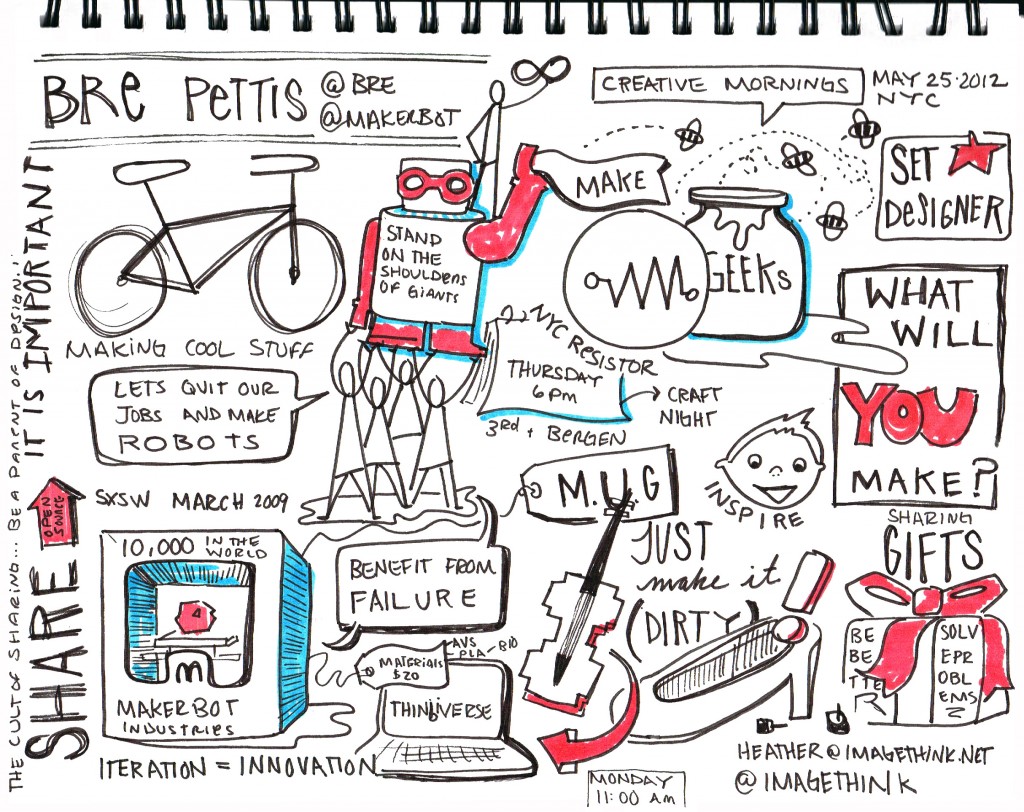 BRE PETTIS
@ BRE
@MAKERBOT
CREATIVE MORNINGS
MAY 25·2012
NYC
SET
DESIGNER
MAKE
GEEKS
STAND
ON THE
SHOULDERS
OF GIANTS
MAKING COOL STUFF
LETS QUIT OUR
JOBS AND MAKE
ROBOTS
NYC RESISTOR
THURSDAY
6PM
3RD + BERGEN
CRAFT
NIGHT
WHAT
WILL
YOU
MAKE?
INSPIRE
M.U.G
SXSW MARCH 2009
10,000 IN THE
WORLD
M
MAKERBOT
INDUSTRIES
BENEFIT FROM
FAILURE
MATERIALS
$20
PLA
THINGIVERSE
ITERATION = INNOVATION
JUST
make it
(DIRTY)
SHARING
GIFTS
BE
BE
TTE
R
SOLV
EPR
OBL
EMS
HEATHER@IMAGETHINK.NET
@IMAGETHINK
MONDAY
11:00 AM
THE CULT OF SHARING... BE A PARENT OF DESIGN..
SHARE
OPEN
SOURCE
IT IS IMPORTANT